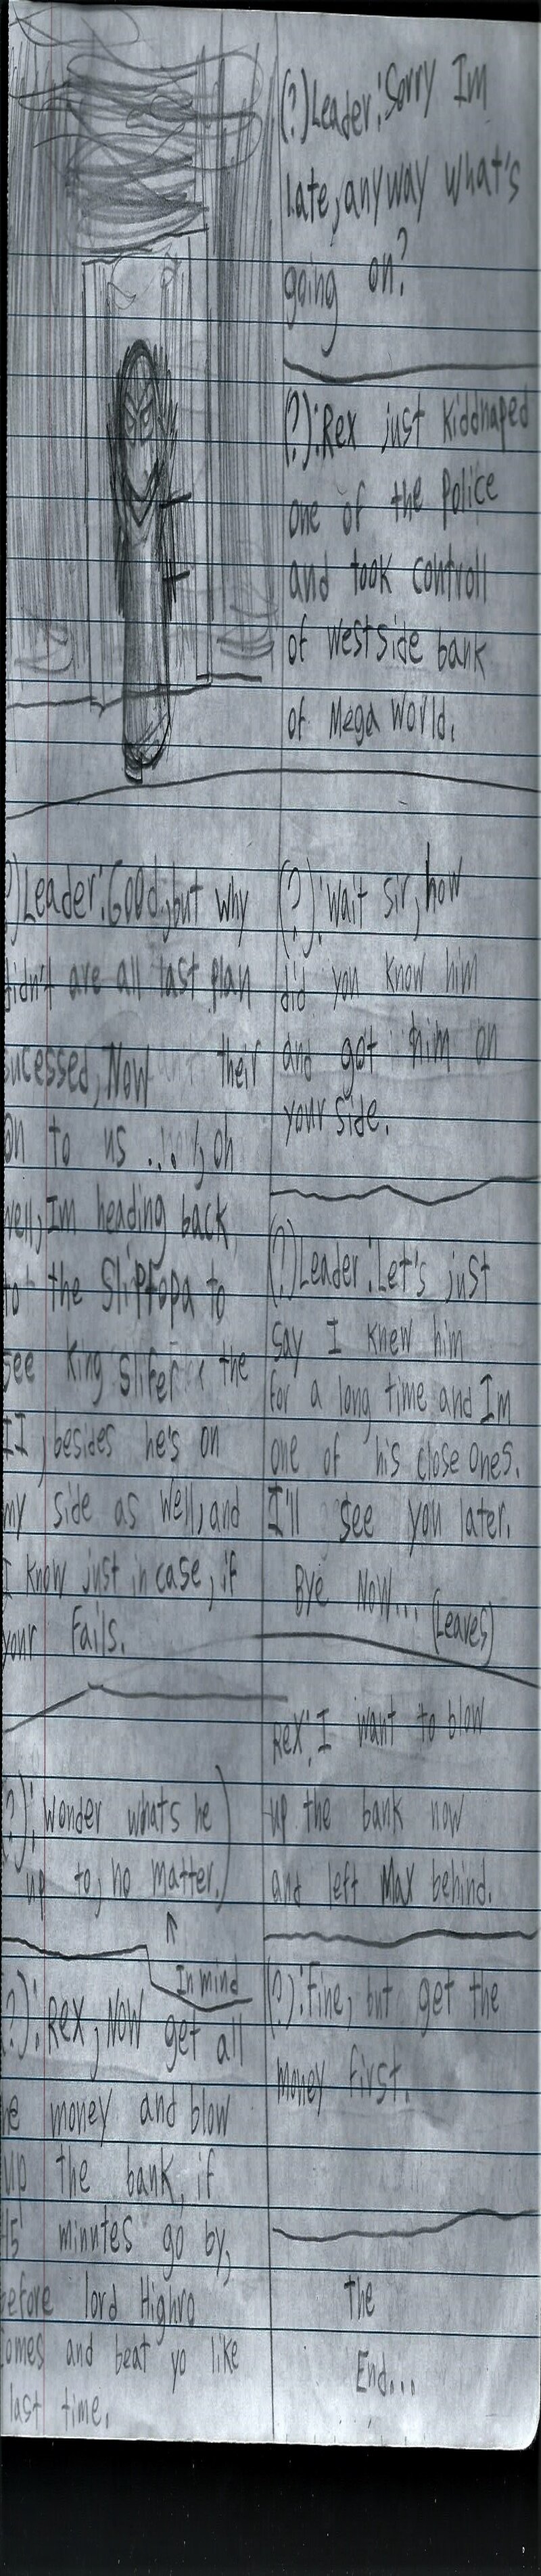 (?)Leader:Sorry Im
late, anyway what's
going on?
(?):Rex just kiddnaped
one of the Police
and took controll
of westside bank
of Mega World.
?)Leader:Good, but why
didn't are all last plan
sucessed, Now their
on to us ...., oh
well, Im heading back
to the Sliptopa to
see King Slifer the
II, besides he's on
my side as well, and
I know just in case, if
your fails.
(?):Wait sir, how
did you know him
and got him on
your side.
(?)Leader:Let's just
say I knew him
for a long time and Im
one of his close ones.
I'll see you later.
Bye Now... (Leaves)
?):Wonder whats he)
up to, no matter.)
In mind
?):Rex, Now get all
he money and blow
up the bank, if
45 minutes go by,
before lord Highro
comes and beat yo like
last time.
Rex:I want to blow
up the bank now
and left Max behind.
(?):Fine, but get the
money first.
The
End...